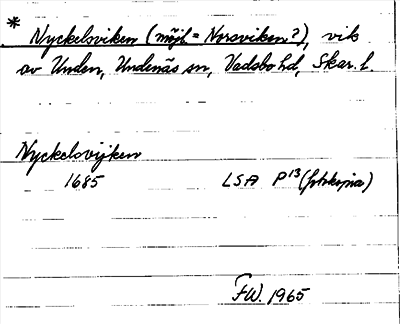 * Nyckelsviken (möjl. = Norsviken?), vik
av Unden, Undenäs sn, Vadsbo hd, Skar. l.
Nyckelsvijken
1685 LSA P13 (fotokopia)
FW. 1965